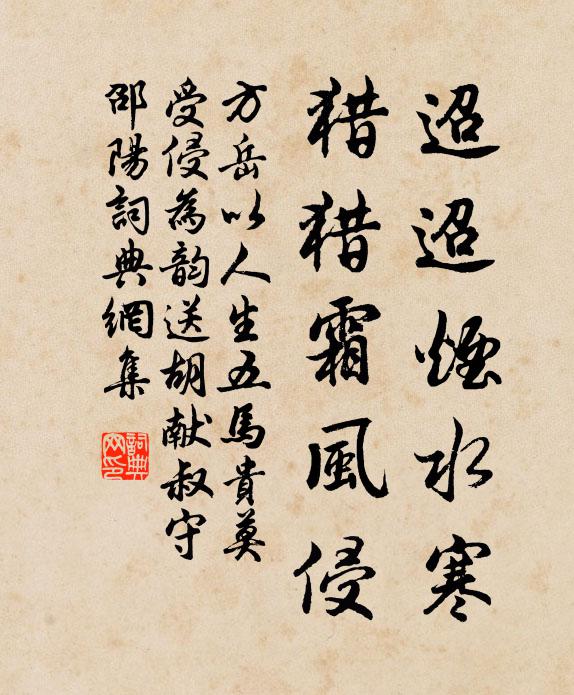 迢迢煙水寒
猎猎霜風侵
方岳以人生五馬貴莫
受侵為韵送胡献叔守
邵陽詞典網集
詞典网印